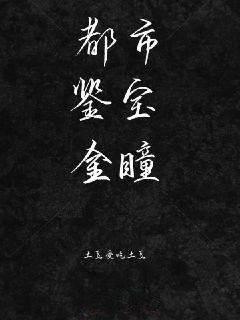 都市
鉴宝
金瞳
土豆爱吃土豆